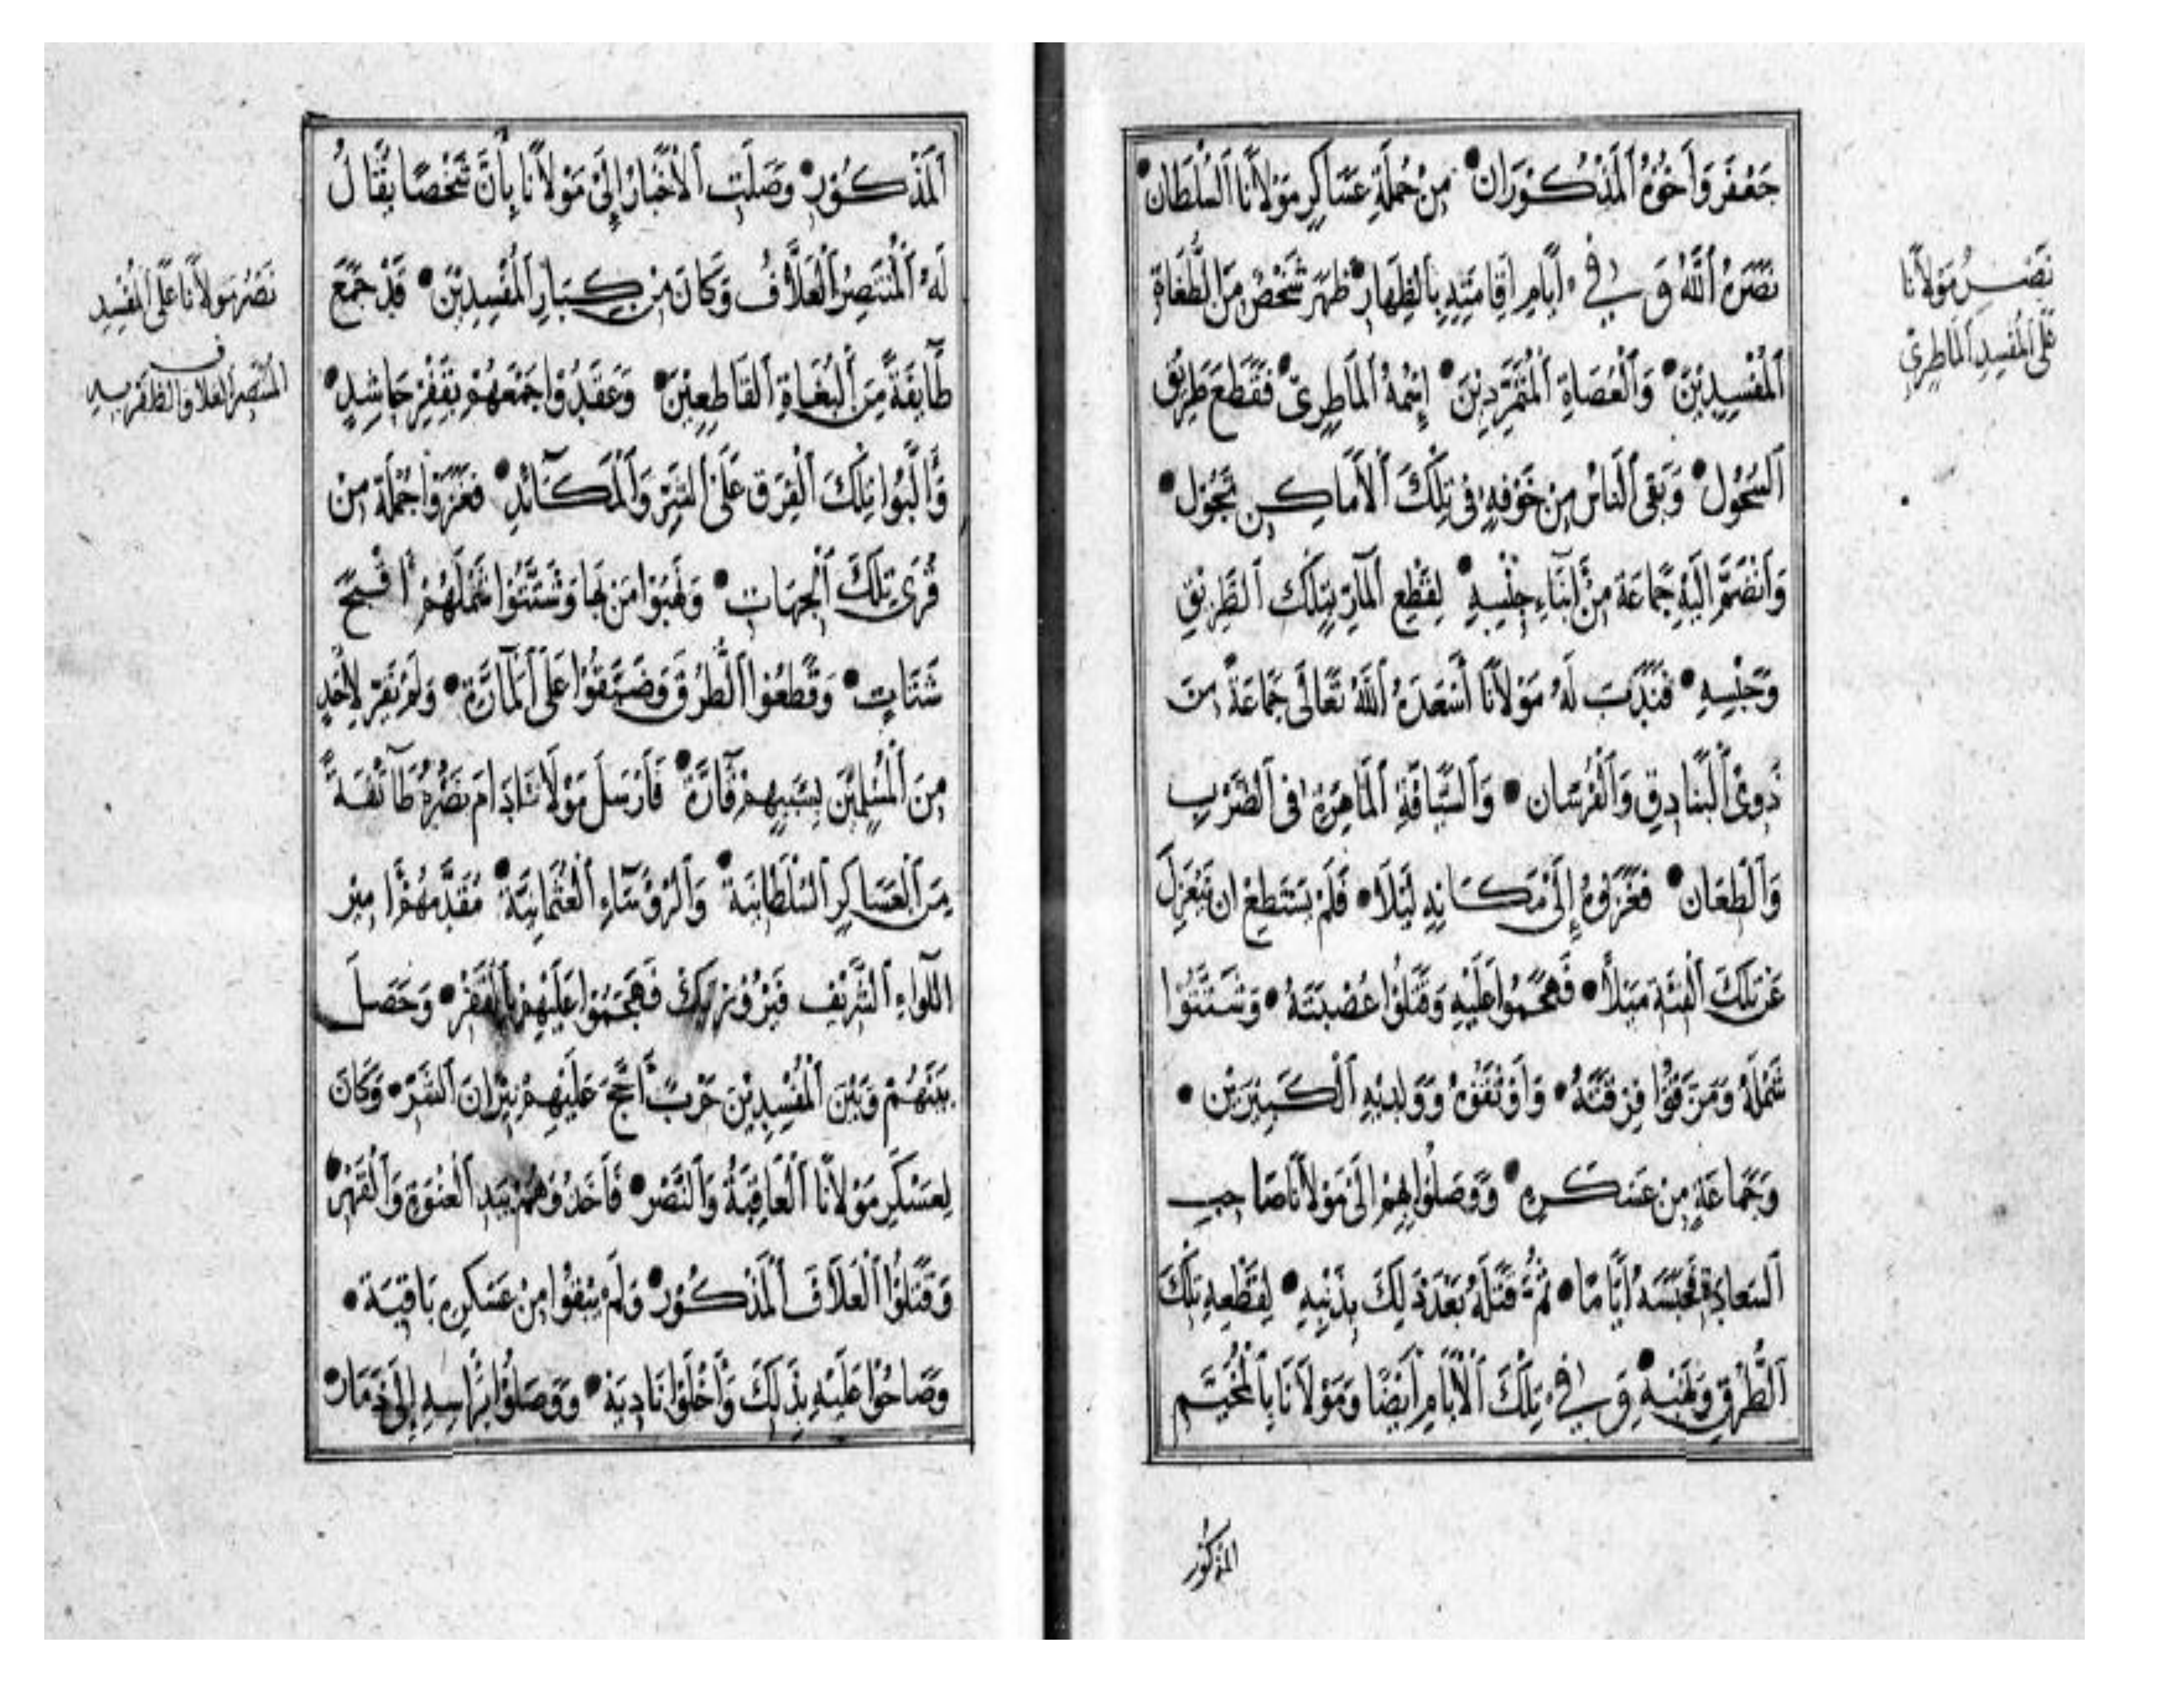 جَعْفَر وَأَخُوهُ ٱلْمَذْكُورَان • مِنْ جُمْلَةِ عَسَاكِرِ مَوْلَانَا ٱلسُّلْطَان •
نَصَرَهُ ٱللّٰهُ وَفِي أَيَّامِ إِقَامَتِهِ بِٱلظِّهَارِ • ظَهَرَ شَخْصٌ مِنَ ٱلطُّغَاةِ
ٱلْمُفْسِدِيْنَ • وَٱلْعُصَاةِ ٱلْمُتَمَرِّدِيْنَ • إِسْمُهُ ٱلْمَاطِرِيّ • فَقَطَعَ طَرِيْقَ
ٱلسَّحُوْل • وَبَقِيَ ٱلنَّاسُ مِنْ خَوْفِهِ فِي تِلْكَ ٱلْأَمَاكِنِ تَجُوْل •
وَٱنْضَمَّ إِلَيْهِ جَمَاعَة مِنْ أَبْنَاءِ جِنْسِهِ • لِقَطْعِ ٱلْمَارِّ بِتِلْكَ ٱلطَّرِيْقِ
وَحَبْسِهِ • فَنَدَبَ لَهُ مَوْلَانَا أَسْعَدَهُ ٱللّٰهُ تَعَالَى جَمَاعَةً مِنَ
ذَوِي ٱلْبَنَادِقِ وَٱلْفُرْسَان • وَٱلسَّيَّافَةِ ٱلْمَاهِرَةِ فِي ٱلضَّرْبِ
وَٱلطِّعَان • فَغَزَوْهُ إِلَى مَكَانِهِ لَيْلًا • فَلَمْ يَسْتَطِعْ أَنْ يَنْعَزِلَ
عَنْ تِلْكَ ٱلْفِئَةِ مَيْلًا • فَهَجَمُوا عَلَيْهِ وَقَتَلُوا عُصْبَتَهُ • وَشَتَّتُوا
شَمْلَهُ وَمَزَّقُوا فِرْقَتَهُ • وَأَوْثَقُوْهُ وَوَلَدَيْهِ ٱلْكَبِيْرَيْن •
وَجَمَاعَةٍ مِنْ عَسْكَرِهِ • وَوَصَلُوا بِهِمْ إِلَى مَوْلَانَا صَاحِبِ
ٱلسَّعَادَة فَحَبَسَهُ أَيَّامًا • ثُمَّ قَتَلَهُ بَعْدَ ذٰلِكَ بِذَنْبِهِ • لِقَطْعِهِ تِلْكَ
ٱلطُّرُقِ وَنَهْبِهِ • وَفِي تِلْكَ ٱلْأَيَّامِ أَيْضًا وَمَوْلَانَا بِٱلْمُخَيَّم
المذكور
نَصْرُ مَوْلَانَا
عَلَى ٱلْمُفْسِدِ ٱلْمَاطِرِيّ
ٱلْمَذْكُوْر • وَصَلَتِ ٱلْأَخْبَارُ إِلَى مَوْلَانَا بِأَنَّ شَخْصًا يُقَالُ
لَهُ ٱلْمُنْتَصِرُ ٱلْعَلَّافُ وَكَانَ مِنْ كِبَارِ ٱلْمُفْسِدِيْنَ • قَدْ جَمَعَ
طَآئِفَةً مِنَ ٱلْبُغَاةِ ٱلْقَاطِعِيْنَ • وَعَقَدُوا جَمْعَهُمْ بِقَفْرِ حَاشِدٍ •
وَأَلَّبُوا تِلْكَ ٱلْفِرَق عَلَى ٱلشَّرِّ وَٱلْمَكَآئِدِ • فَغَزَوْا جُمْلَةً مِنْ
قُرَى تِلْكَ ٱلْجِهَاتِ • وَنَهَبُوا مَنْ بِهَا وَشَتَّتُوا شَمْلَهُمْ أَقْبَحَ
شَتَاتٍ • وَقَطَعُوا ٱلطُّرُقَ وَضَيَّقُوا عَلَى ٱلْمَآرَّةِ • وَلَمْ تَقِرّ لِأَحَدٍ
مِنَ ٱلْمُسْلِمِيْنَ بِسَبَبِهِمْ قَآرَّة • فَأَرْسَلَ مَوْلَانَا دَامَ نَصْرُهُ طَآئِفَةً
مِنَ ٱلْعَسَاكِرِ ٱلسُّلْطَانِيَّة • وَٱلرُّؤَسَآءِ ٱلْعُثْمَانِيَّة • مُقَدَّمُهُمْ أَمِيْر
اللِّوَاءِ ٱلشَّرِيْف فَيْرُوْز بَك فَهَجَمُوا عَلَيْهِمْ بِٱلْقَفْرِ • وَحَصَلَ
بَيْنَهُمْ وَبَيْنَ ٱلْمُفْسِدِيْنَ حَرْبٌ أَجَّجَ عَلَيْهِمْ نِيْرَانَ ٱلشَّرِّ • وَكَانَ
لِعَسْكَرِ مَوْلَانَا ٱلْعَاقِبَةُ وَٱلنَّصْر • فَأَخَذُوْهُمْ بِيَدِ ٱلْعَنْوَةِ وَٱلْقَهْرِ •
وَقَتَلُوا ٱلْعَلَّافَ ٱلْمَذْكُوْر • وَلَمْ يُبْقُوْا مِنْ عَسْكَرِهِ بَاقِيَة •
وَصَاحُوْا عَلَيْهِ بِذٰلِكَ وَأَخْلَوْا نَادِيَهُ • وَوَصَلُوا بِرَأْسِهِ إِلَى خَدَمَاتِ
نَصْرُ مَوْلَانَا عَلَى ٱلْمُفْسِدِ
المنتصر العلاف والظفر به